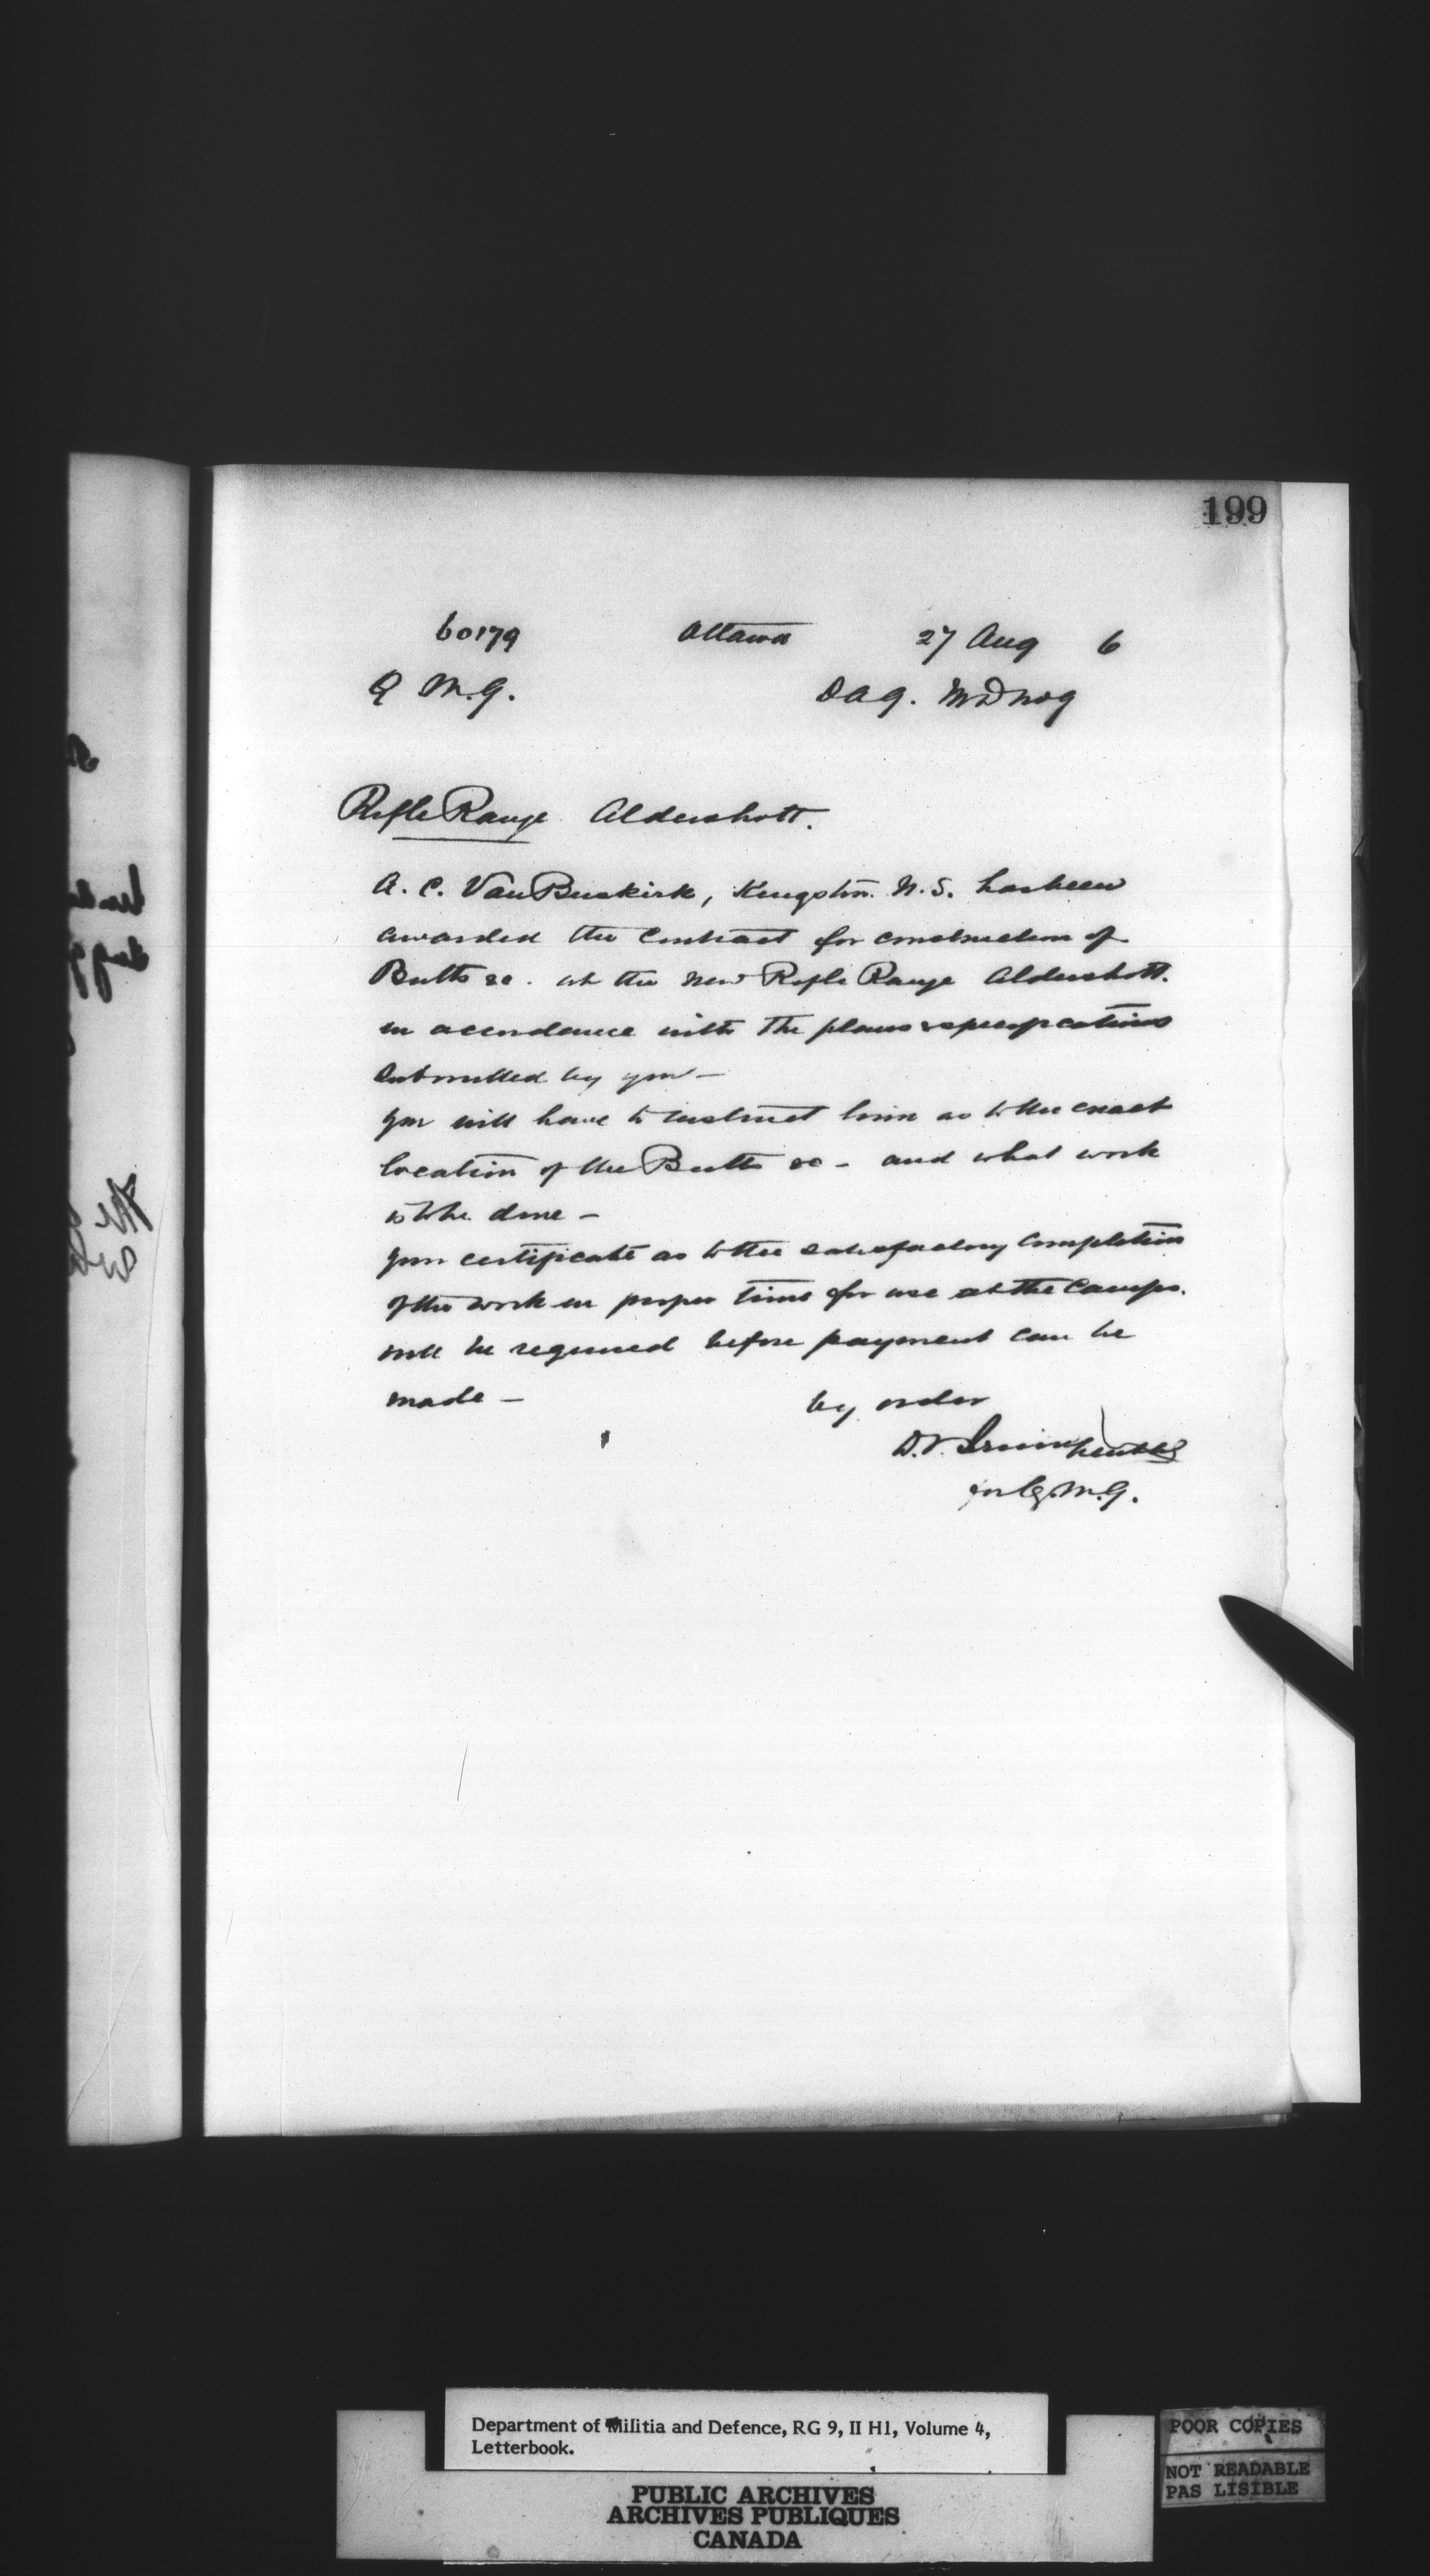 199
60179 Ottawa 27 Aug 6
Q M.G. DAG. MD No 9
Rifle Range Aldershott.
A. C. VanBuskirk, Kingston. N.S. has been
awarded the contract for construction of
Butts &c. at the new Rifle Range Aldershott.
in accordance with the plans & specifications
submitted by you —
you will have to instruct him as to the exact
location of the Butts &c - and what work
is to be done —
your certificate as to the satisfactory completion
of the work in proper time for use at the Camps.
will be required before payment can be
made —
by order
D.T. Irwin
for Q.M.G.
Department of Militia and Defence, RG 9, II H1, Volume 4,
Letterbook.
PUBLIC ARCHIVES
ARCHIVES PUBLIQUES
CANADA
POOR COPIES
NOT READABLE
PAS LISIBLE